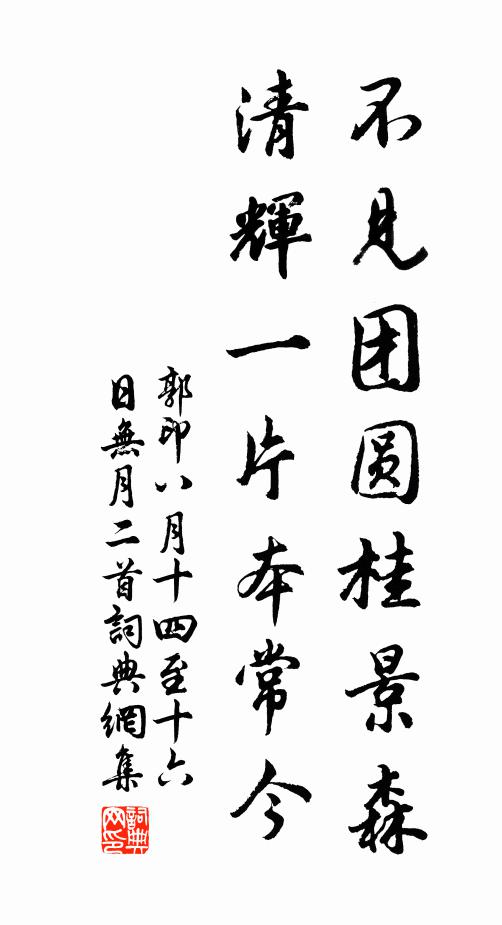 不见团圆桂景森
清輝一片本常今
郭印八月十四至十六
日無月二首詞典網集
詞典
网印